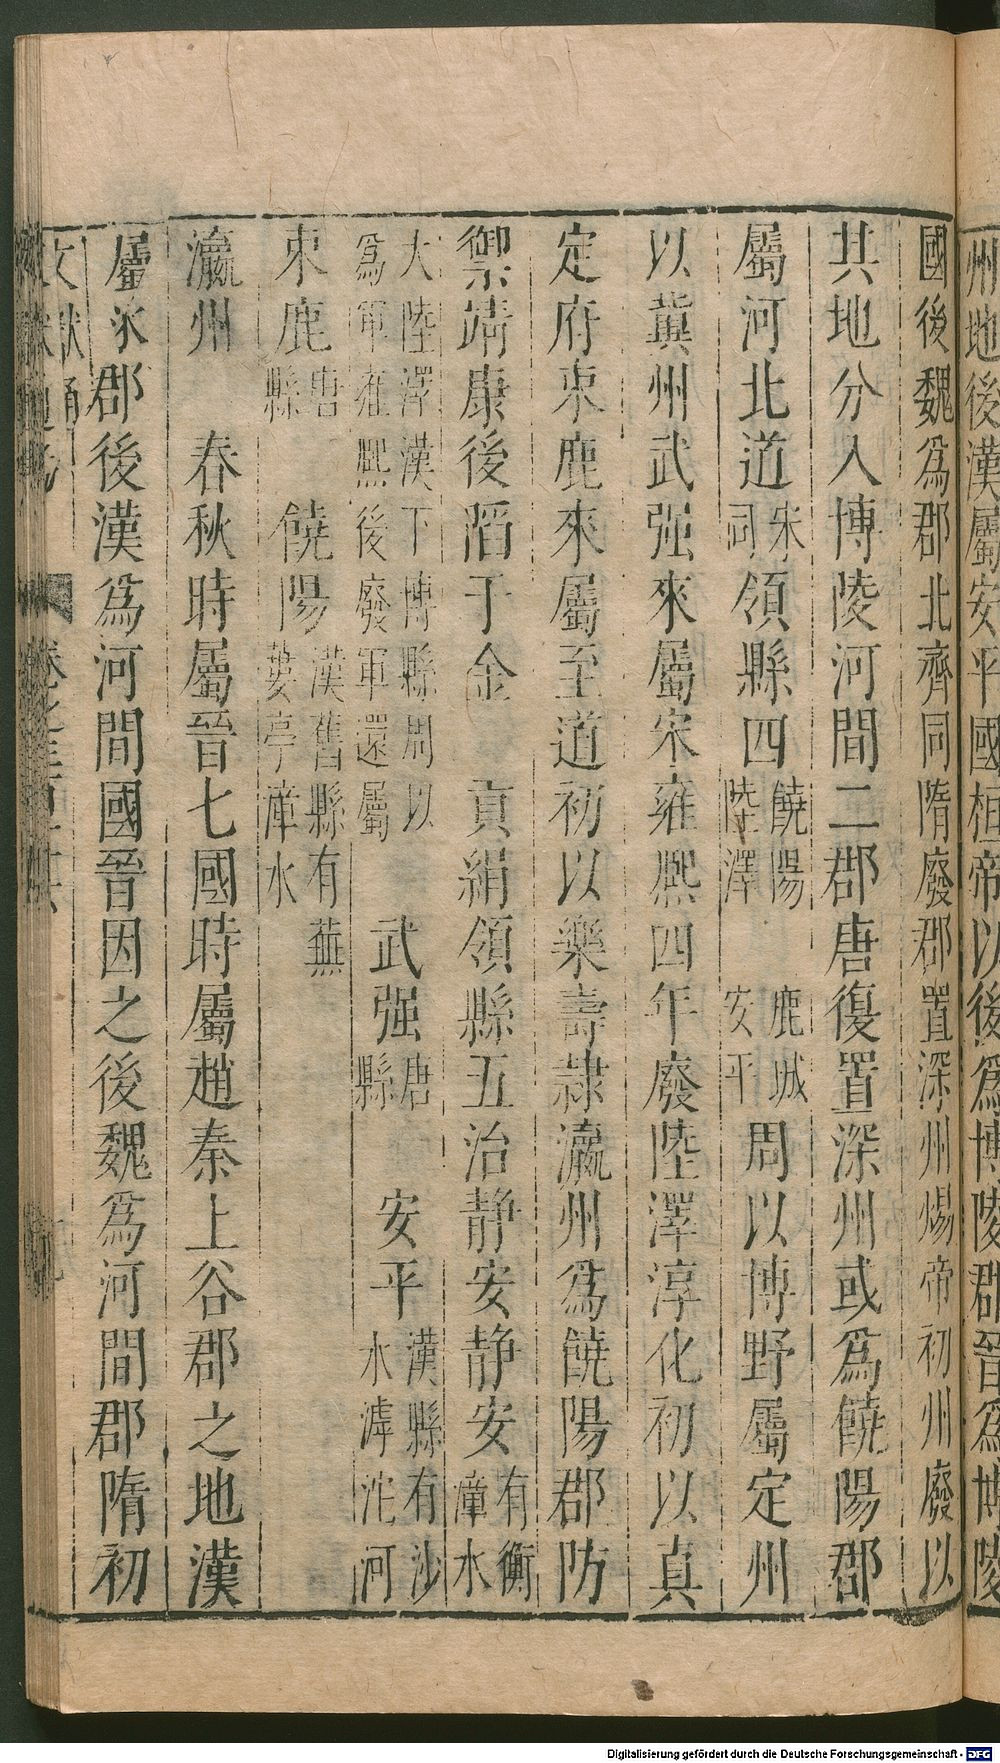 州地後漢屬安平國桓帝以後爲博陵郡晉爲博陵
國後魏爲郡北齊同隋廢郡置深州煬帝初州廢以
其地分入博陵河間二郡唐復置深州或爲饒陽郡
屬河北道宋同領縣四饒陽 鹿城 陸澤 安平周以博野屬定州
以冀州武强來屬宋雍熙四年廢陸澤淳化初以真
定府束鹿來屬至道初以樂壽隷瀛州爲饒陽郡防
禦靖康後滔于金 貢絹領縣五治静安静安有衡漳水
大陸澤漢下博縣周以爲軍雍熙後廢軍還屬 武强唐縣 安平漢縣有沙水滹沱河
束鹿唐縣 饒陽漢舊縣有蕪蔞亭漳水
瀛州 春秋時屬晉七國時屬趙秦上谷郡之地漢
屬氶郡後漢爲河間國晉因之後魏爲河間郡隋初
文獻通考 卷之三百十六
Digitalisierung gefördert durch die Deutsche Forschungsgemeinschaft - DFG